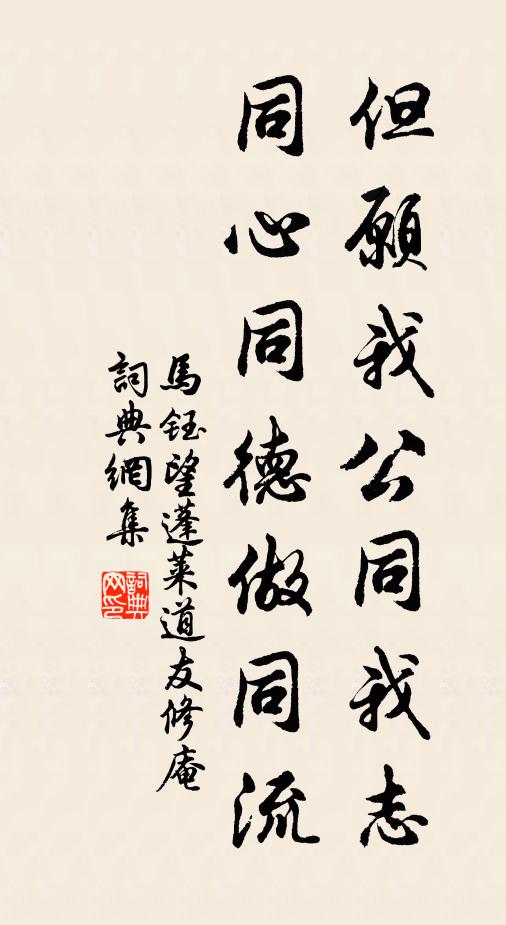 但願我公同我志
同心同德做同流
馬鈺望蓬萊道友修庵
詞典網集
詞典網印